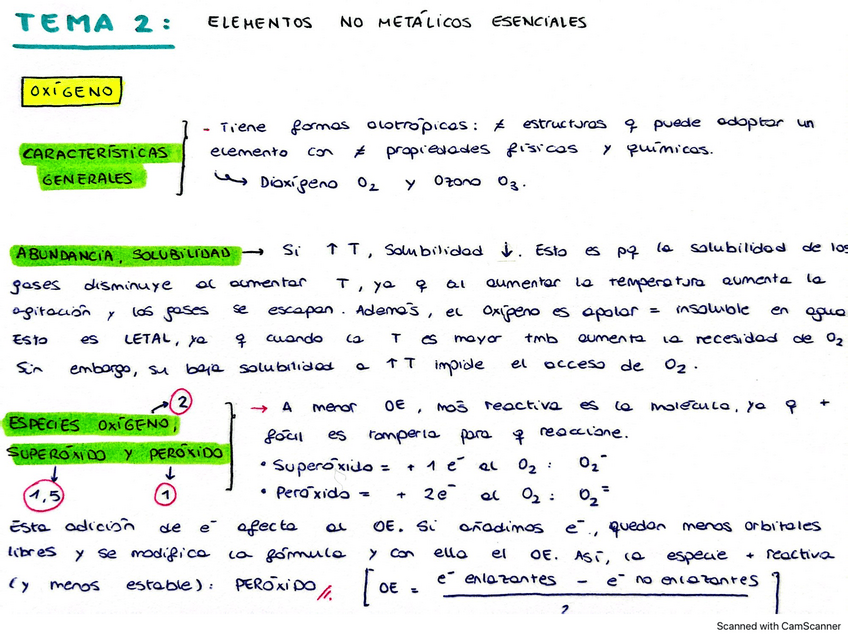 TEMA 2: ELEMENTOS NO METÁLICOS ESENCIALES
OXÍGENO
CARACTERÍSTICAS GENERALES
- Tiene formas alotrópicas: ≠ estructuras q puede adoptar un
elemento con ≠ propiedades físicas y químicas.
↳ Dioxígeno O₂ y Ozono O₃.
ABUNDANCIA, SOLUBILIDAD → Si ↑ T, Solubilidad ↓. Esto es pq la solubilidad de los
gases disminuye al aumentar T, ya q al aumentar la temperatura aumenta la
agitación y los gases se escapan. Además, el oxígeno es apolar = insoluble en agua
Esto es LETAL, ya q cuando la T es mayor tmb aumenta la necesidad de O₂
Sin embargo, su baja solubilidad a ↑T impide el acceso de O₂.
2
ESPECIES OXÍGENO,
SUPERÓXIDO Y PERÓXIDO
1,5 1
→ A menor OE, más reactiva es la molécula, ya q +
fácil es romperla para q reaccione.
• Superóxido = + 1 e⁻ al O₂ : O₂⁻
• Peróxido = + 2e⁻ al O₂ : O₂⁼
Esta adición de e⁻ afecta al OE. Si añadimos e⁻, quedan menos orbitales
libres y se modifica la fórmula y con ello el OE. Así, la especie + reactiva
(y menos estable): PERÓXIDO//. [OE = e⁻ enlazantes - e⁻ no enlazantes / 2]
Scanned with CamScanner